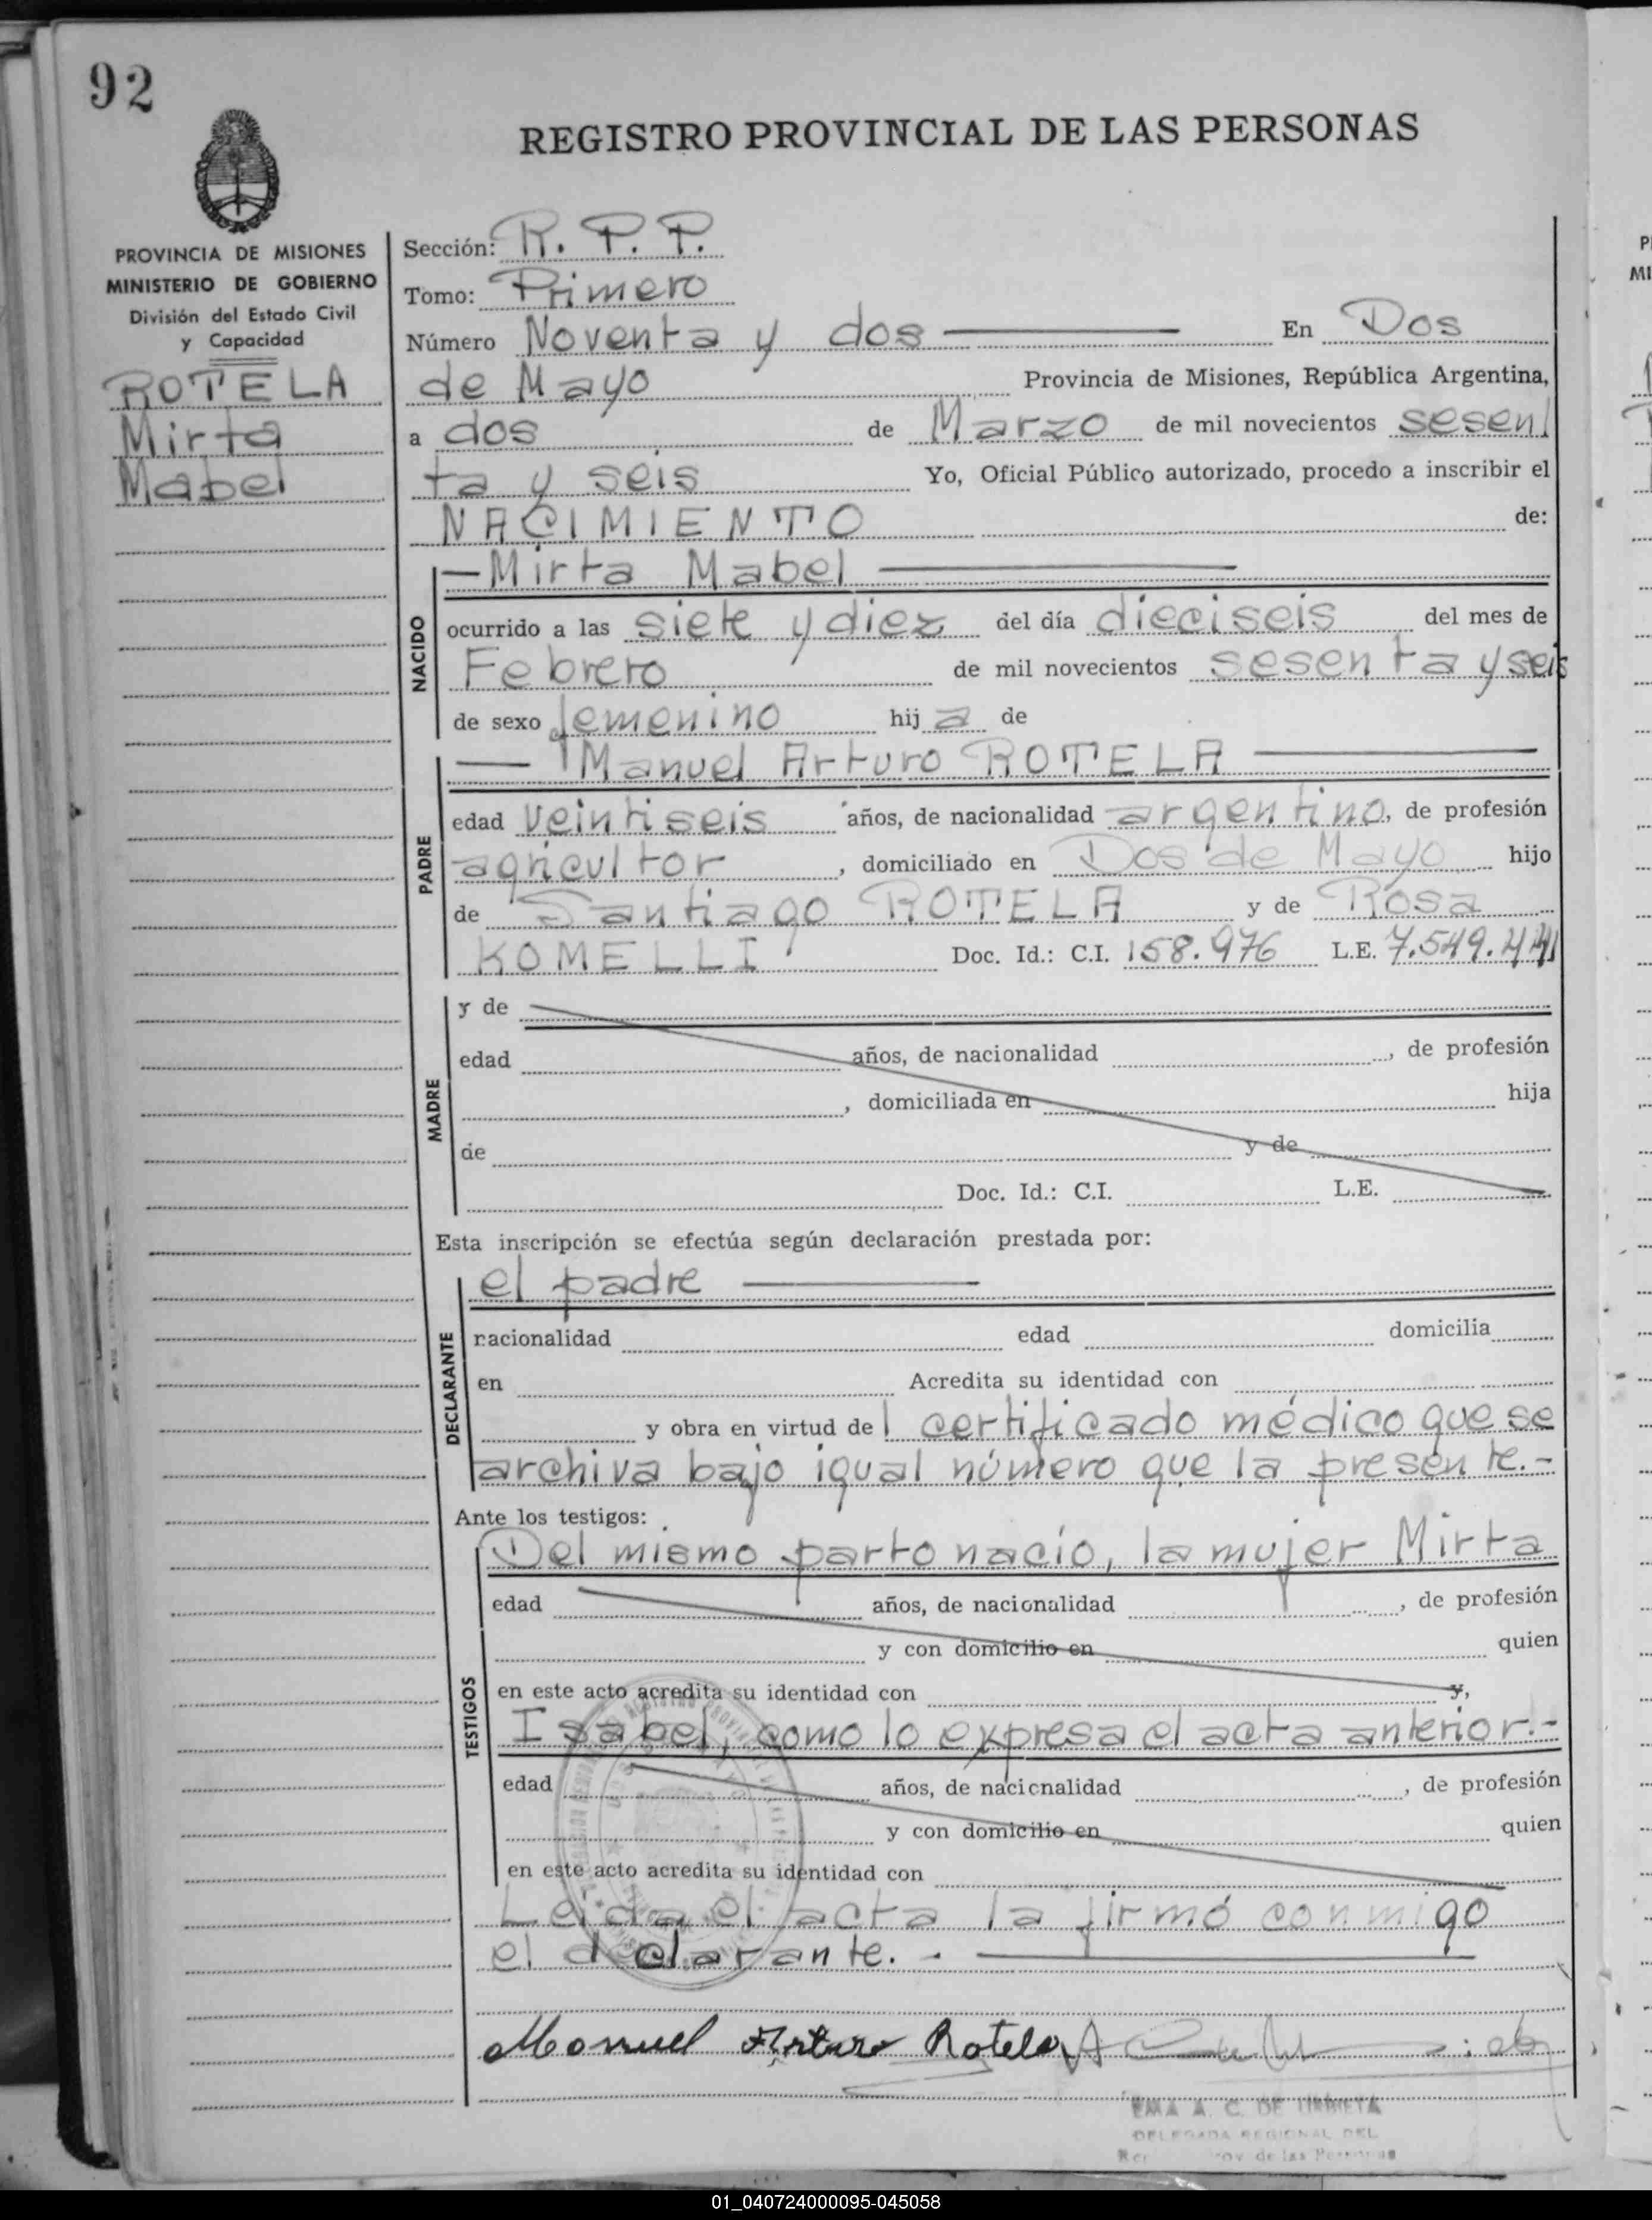 92
REGISTRO PROVINCIAL DE LAS PERSONAS
PROVINCIA DE MISIONES
MINISTERIO DE GOBIERNO
División del Estado Civil
y Capacidad
ROTELA
Mirta
Mabel
Sección: R. P. P.
Tomo: Primero
Número Noventa y dos — En Dos
de Mayo Provincia de Misiones, República Argentina,
a dos de Marzo de mil novecientos sesen
ta y seis Yo, Oficial Público autorizado, procedo a inscribir el
NACIMIENTO de:
NACIDO
— Mirta Mabel —
ocurrido a las siete y diez del día dieciseis del mes de
Febrero de mil novecientos sesenta y seis
de sexo femenino hija de
PADRE
— Manuel Arturo ROTELA —
edad veintiseis años, de nacionalidad argentino, de profesión
agricultor, domiciliado en Dos de Mayo hijo
de Santiago ROTELA y de Rosa
KOMELLI Doc. Id.: C.I. 158.976 L.E.
MADRE
y de
edad años, de nacionalidad , de profesión
, domiciliada en hija
de y de
Doc. Id.: C.I. L.E.
Esta inscripción se efectúa según declaración prestada por:
DECLARANTE
el padre —
nacionalidad edad domicilia
en Acredita su identidad con
y obra en virtud del certificado médico que se
archiva bajo igual número que la presente.-
Ante los testigos:
TESTIGOS
Del mismo parto nacío, la mujer Mirta
edad años, de nacionalidad , de profesión
y con domicilio en quien
en este acto acredita su identidad con y,
Isabel, como lo expresa el acta anterior.-
edad años, de nacionalidad , de profesión
y con domicilio en quien
en este acto acredita su identidad con
Leída el acta la firmó conmigo
el declarante. . —
Manuel Arturo Rotela
EMA A. C. DE URBIETA
DELEGADA REGIONAL DEL
de las Personas
01_040724000095-045058